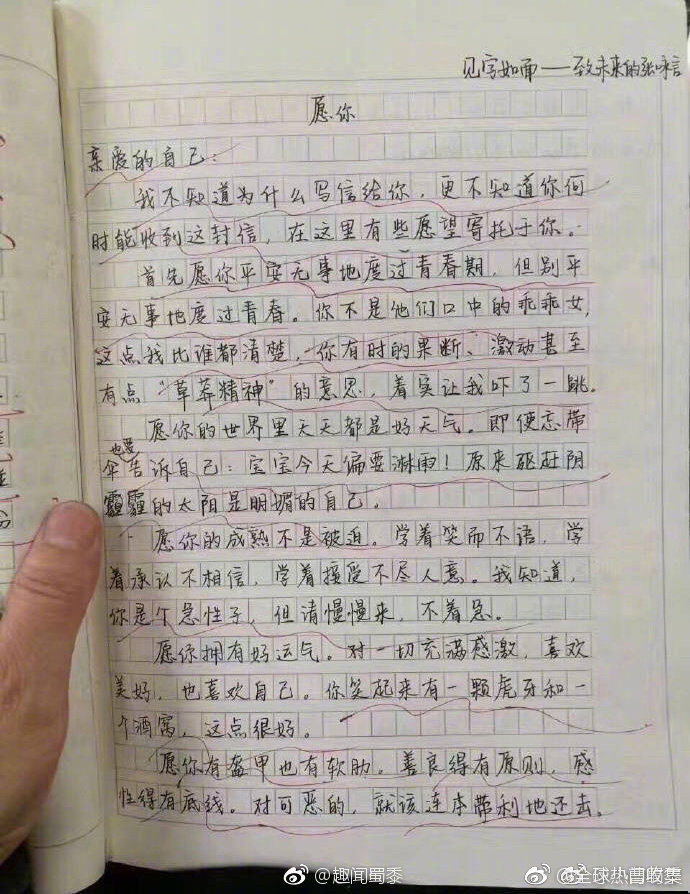 见字如面——致未来的张咏言
愿你
亲爱的自己：
我不知道为什么写信给你，更不知道你何
时能收到这封信，在这里有些愿望寄托于你。
首先愿你平安无事地度过青春期，但别平
安无事地度过青春。你不是他们口中的乖乖女，
这点我比谁都清楚，你有时的果断、激动甚至
有点“草莽精神”的意思，着实让我吓了一跳。
愿你的世界里天天都是好天气。即便忘带
也要
伞告诉自己：宝宝今天偏要淋雨！原来驱赶阴
霾的太阳是明媚的自己。
愿你的成熟不是被迫。学着笑而不语，学
着承认不相信，学着接受不尽人意。我知道，
你是个急性子，但请慢慢来，不着急。
愿你拥有好运气。对一切充满感激，喜欢
美好，也喜欢自己。你笑起来有一颗虎牙和一
个酒窝，这点很好。
愿你有盔甲也有软肋。善良得有原则，感
性得有底线。对可恶的，就该连本带利地还去。
@趣闻蜀黍
@全球热门搜集